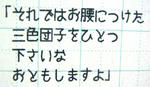 「それではお腰につけた
三色団子をひとつ
下さいな
おともしますよ」